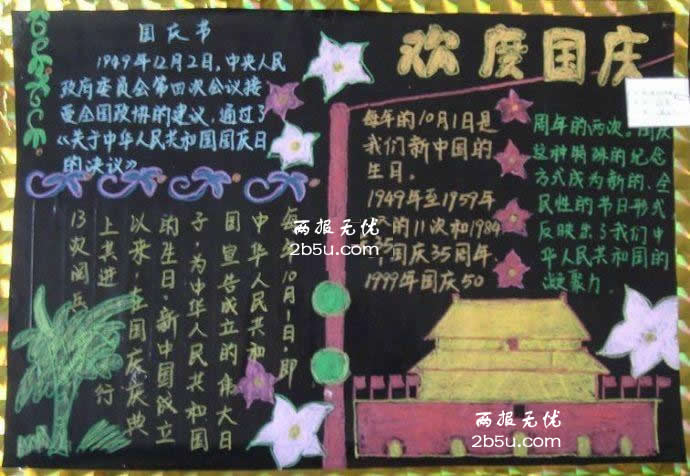 欢度国庆
国庆节
1949年12月2日，中央人民
政府委员会第四次会议接
受全国政协的建议，通过了
《关于中华人民共和国国庆日
的决议》
每年10月1日，即
中华人民共和
国宣告成立的伟大日
子，为中华人民共和国
的生日，新中国成立
以来，在国庆庆典
上共进行
13次阅兵
每年的10月1日是
我们新中国的
生日。
1949年至1959年
的11次和1984
国庆35周年、
1999年国庆50
周年的两次。国庆
这种特殊的纪念
方式成为新的、全
民性的节日形式，
反映出了我们中
华人民共和国的
凝聚力。
两报无忧
2b5u.com
两报无忧
2b5u.com
两报无忧
2b5u.com